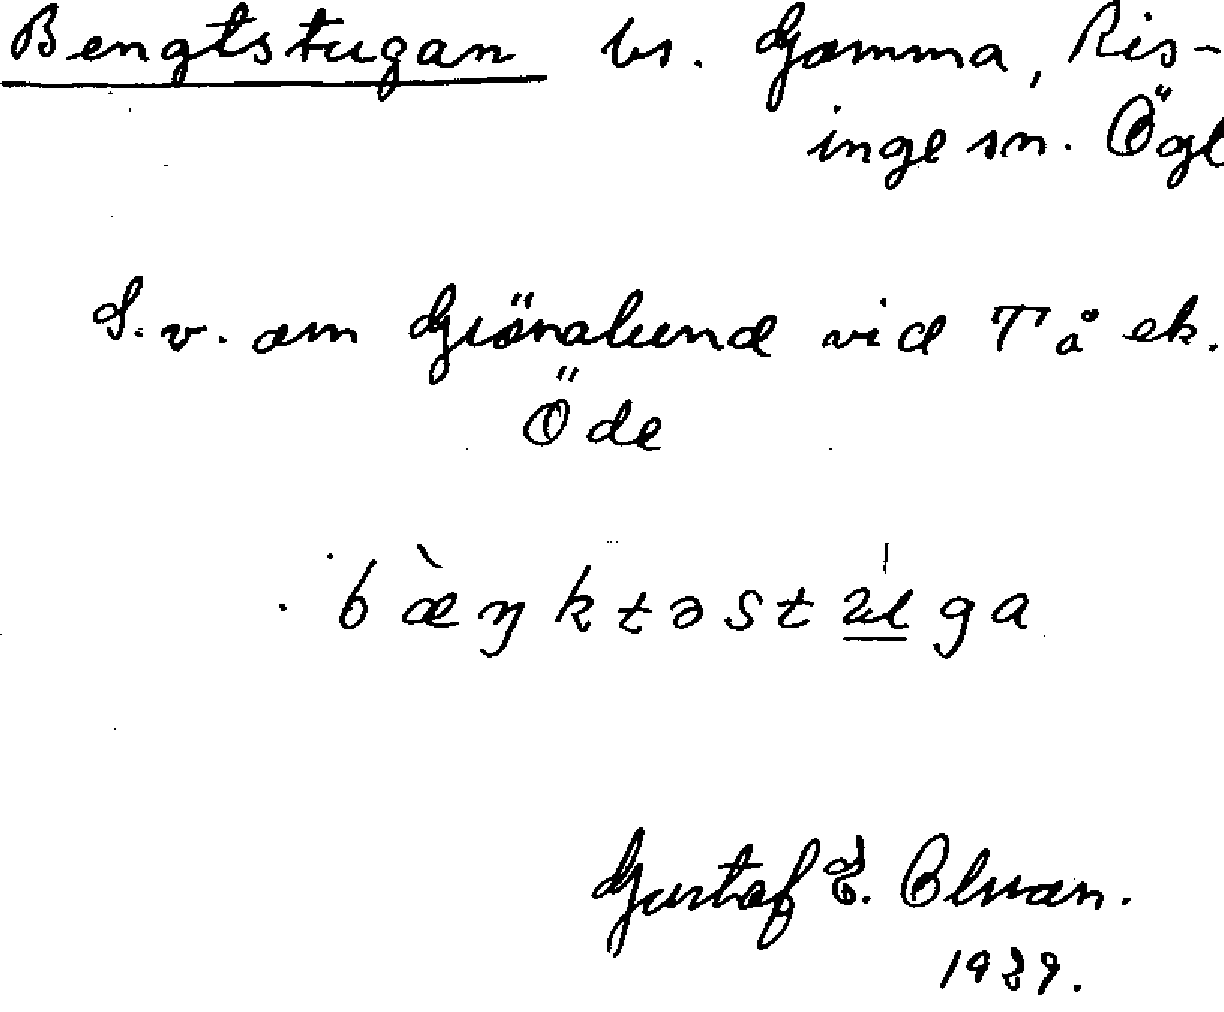 Bengtstugan bs. Gamma, Ris-
inge sn. Ögl
S.v. om Grönalund vid Tå ek.
Öde
bæ̀ŋktəstu̲ga
Gustaf E. Olsson.
1929.